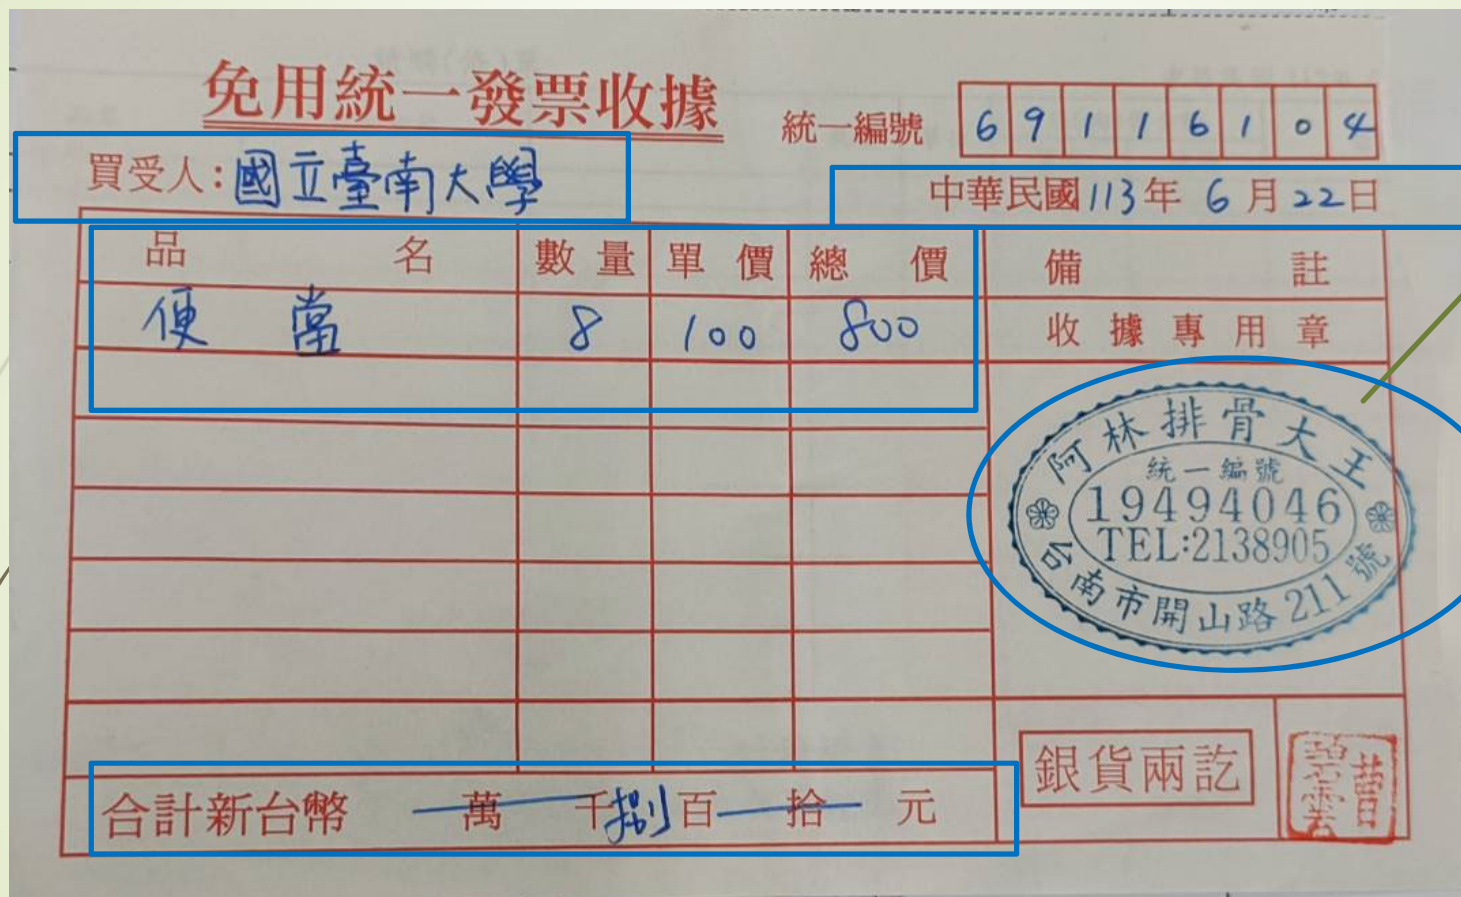 免用統一發票收據
統一編號 69116104
買受人：國立臺南大學
中華民國113年6月22日
品名 數量 單價 總價 備註
便當 8 100 800 收據專用章
阿林排骨大王
統一編號
19494046
TEL:2138905
台南市開山路211號
合計新台幣 萬 千捌百 拾 元
銀貨兩訖